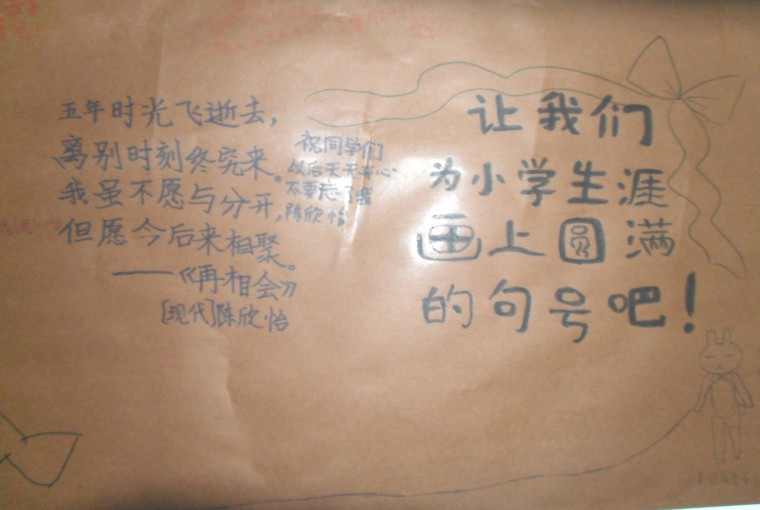 五年时光飞逝去，
离别时刻终究来。
我虽不愿与分开，
但愿今后来相聚。
——《再相会》
[现代]陈欣怡
祝同学们
以后天天开心
不要忘了我
陈欣怡
让我们
为小学生涯
画上圆满
的句号吧！